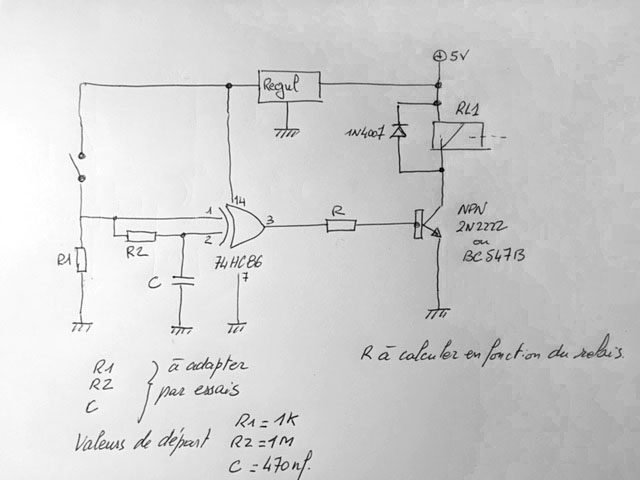 ⊕ 5V
Regul
RL1
1N4007
14
1
2
3
R
R1
R2
C
74HC86
7
NPN
2N2222
ou
BC547B
R à calculer en fonction du relais.
R1
R2
C
à adapter
par essais
Valeurs de départ
R1 = 1K
R2 = 1M
C = 470nf.